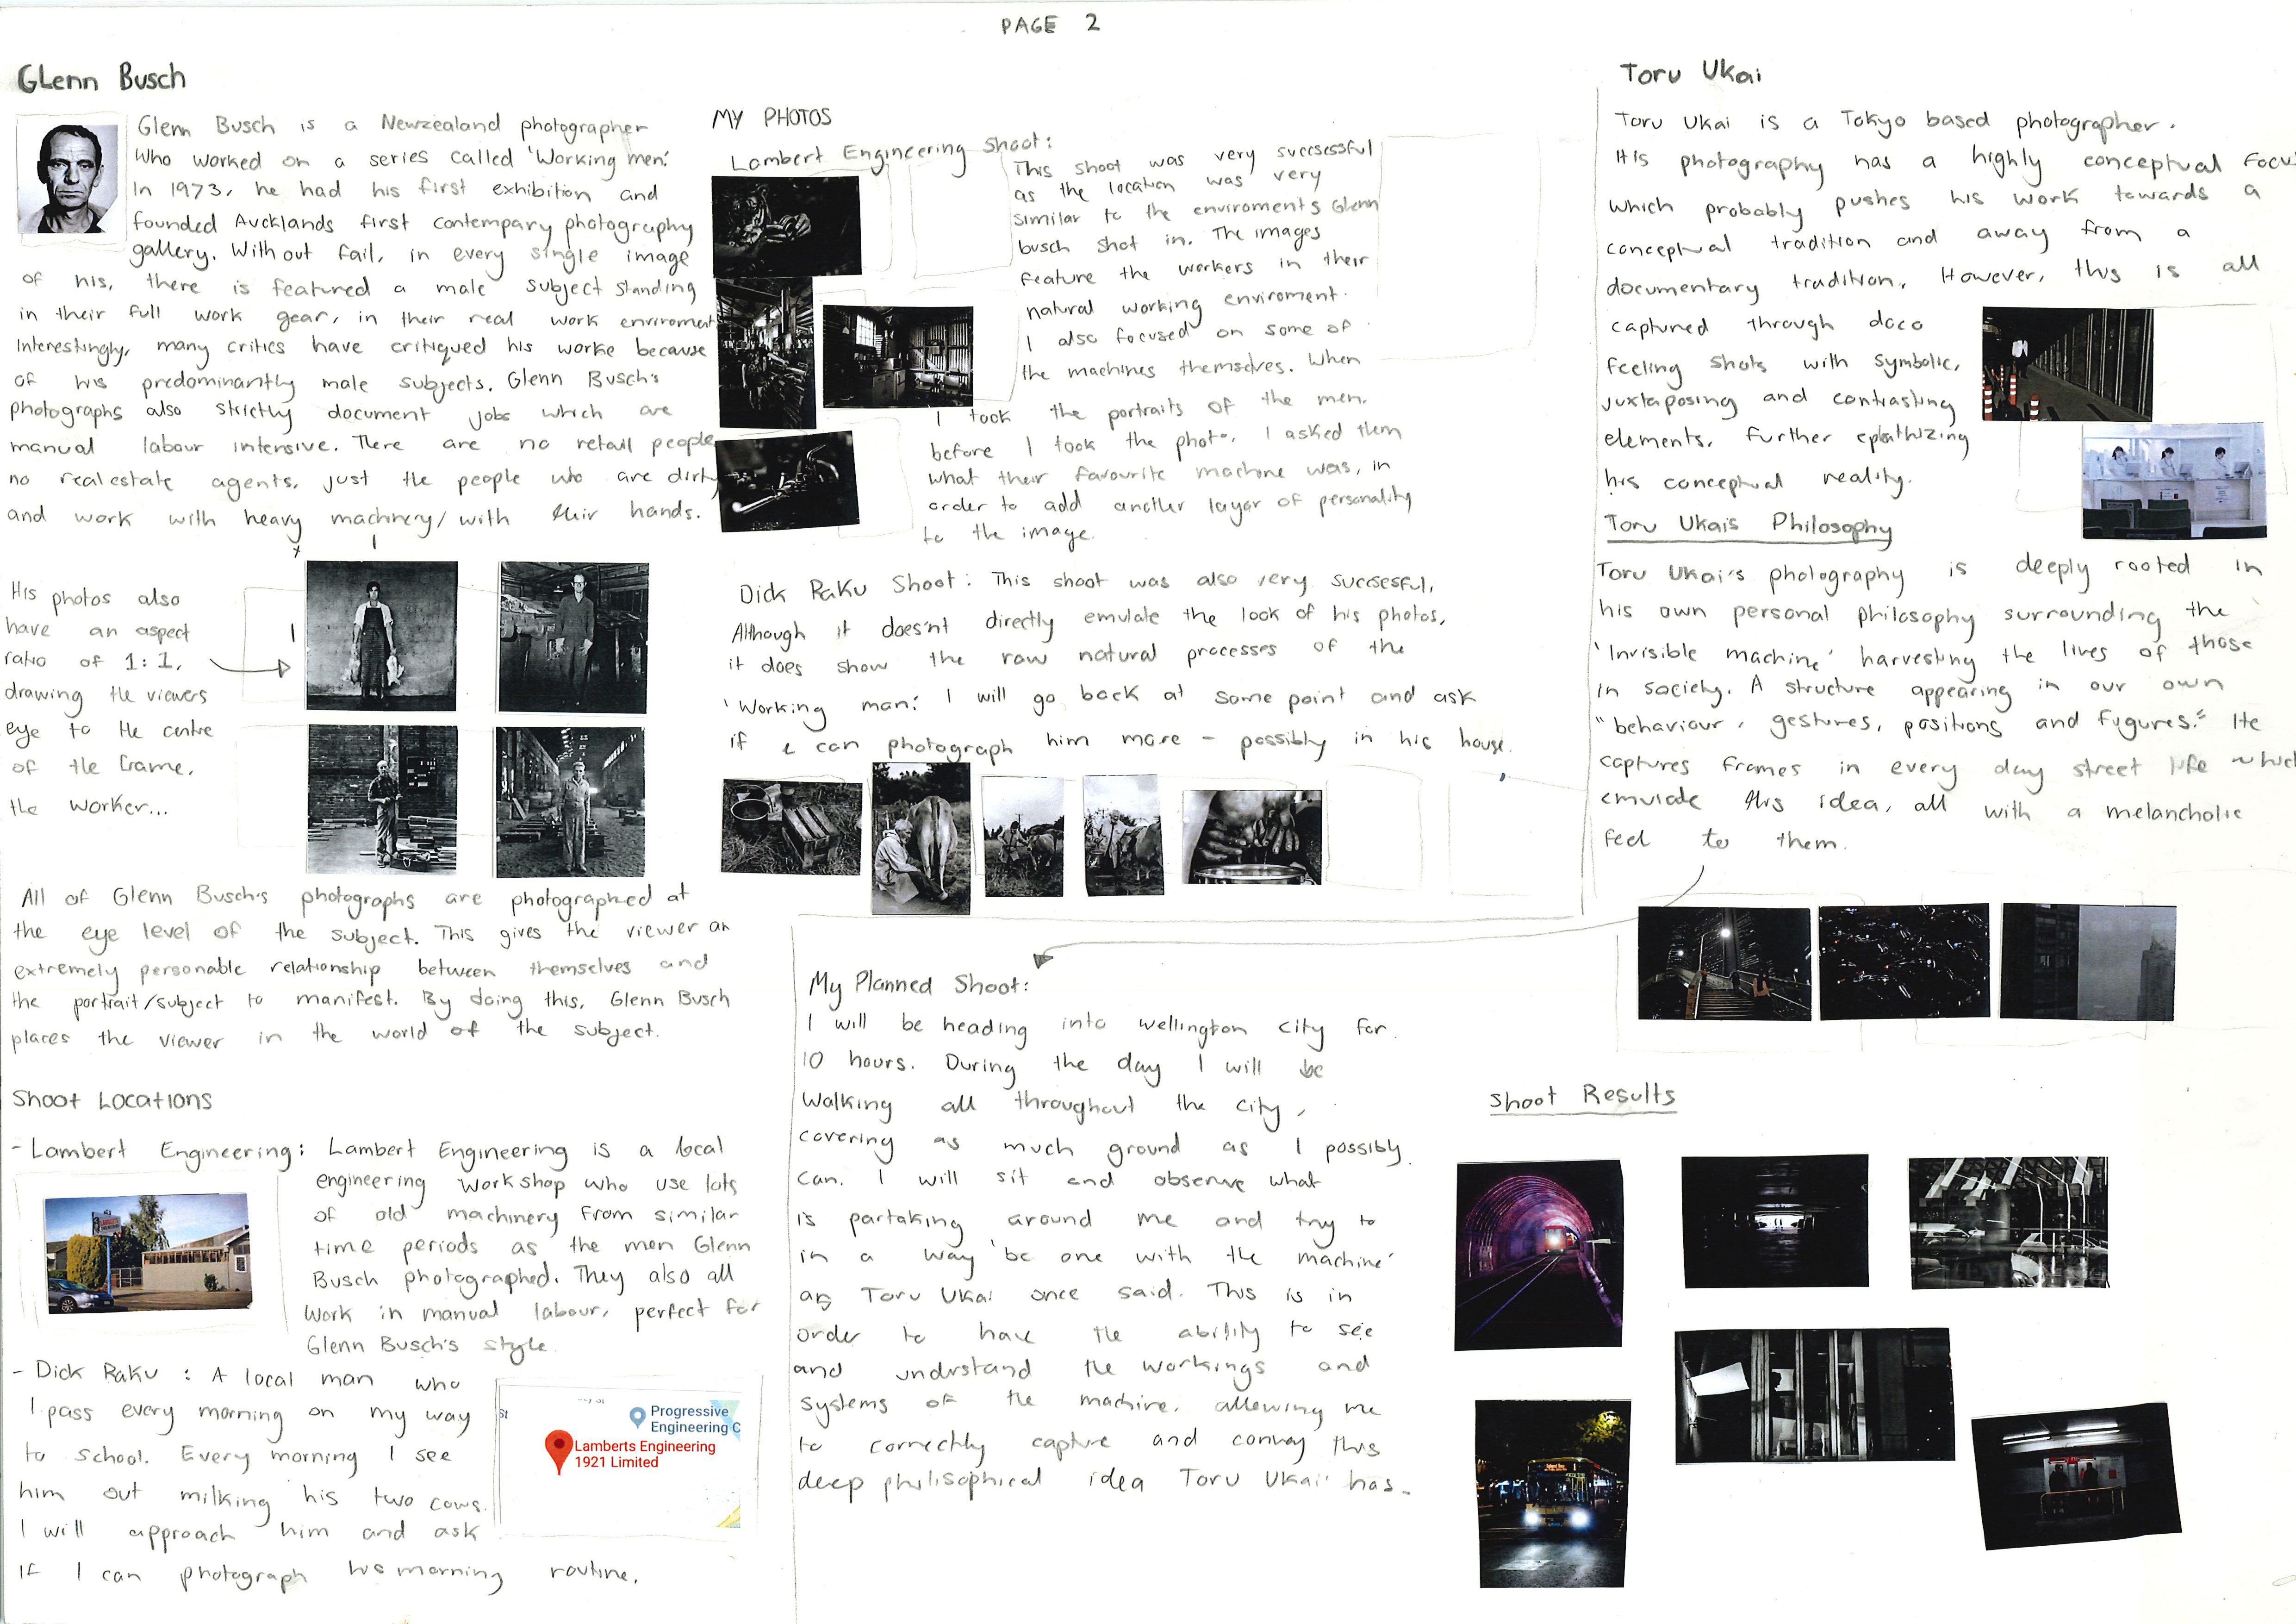 PAGE 2
GLenn Busch
Glenn Busch is a Newzealand photographer
Who worked on a series called 'Working men'.
In 1973, he had his first exhibition and
founded Aucklands first contempary photography
gallery. With out fail, in every single image
of his, there is featured a male subject standing
in their full work gear, in their real work enviroment
Interestingly, many critics have critiqued his worke because
of his predominantly male subjects. Glenn Busch's
photographs also strictly document jobs which are
manual labour intensive. There are no retail people
no realestate agents, just the people who are dirty
and work with heavy machinery/with their hands.
His photos also
have an aspect
ratio of 1:1,
drawing the viewers
eye to the centre
of the frame.
the worker...
1
1
All of Glenn Busch's photographs are photographed at
the eye level of the subject. This gives the viewer an
extremely personable relationship between themselves and
the portrait/subject to manifest. By doing this, Glenn Busch
places the viewer in the world of the subject.
Shoot Locations
- Lambert Engineering: Lambert Engineering is a local
engineering workshop who use lots
of old machinery from similar
time periods as the men Glenn
Busch photographed. They also all
work in manual labour, perfect for
Glenn Busch's style.
- Dick Raku : A local man who
I pass every morning on my way
to school. Every morning I see
him out milking his two cows.
I will approach him and ask
if I can photograph his morning routine.
St
Progressive
Engineering C
Lamberts Engineering
1921 Limited
MY PHOTOS
Lambert Engineering shoot:
This shoot was very succsessful
as the location was very
similar to the enviroments Glenn
busch shot in. The images
feature the workers in their
natural working enviroment.
I also focused on some of
the machines themselves. When
I took the portraits of the men.
before I took the photo, I asked them
what their favourite machine was, in
order to add another layer of personality
to the image.
Dick Raku Shoot: This shoot was also very succsesful,
Although it does'nt directly emulate the look of his photos,
it does show the raw natural processes of the
'Working man'. I will go back at some point and ask
if i can photograph him more - possibly in his house.
My Planned Shoot:
I will be heading into wellington city for
10 hours. During the day I will be
walking all throughout the city,
covering as much ground as I possibly
can. I will sit and observe what
is partaking around me and try to
in a way 'be one with the machine'
as Toru Ukai once said. This is in
order to have the ability to see
and understand the workings and
systems of the machine, allowing me
to correctly capture and convay this
deep philisophical idea Toru Ukai has.
Toru Ukai
Toru Ukai is a Tokyo based photographer.
His photography has a highly conceptual focus
which probably pushes his work towards a
conceptual tradition and away from a
documentary tradition. However, this is all
captured through doco
feeling shots with symbolic,
juxtaposing and contrasting
elements, further
his conceptual reality.
Toru Ukai's Philosophy
Toru Ukai's photography is deeply rooted in
his own personal philosophy surrounding the
'Invisible machine' harvesting the lives of those
in society. A structure appearing in our own
"behaviour, gestures, positions and fygures." He
captures frames in every day street life which
emulate this idea, all with a melancholic
feel to them.
Shoot Results